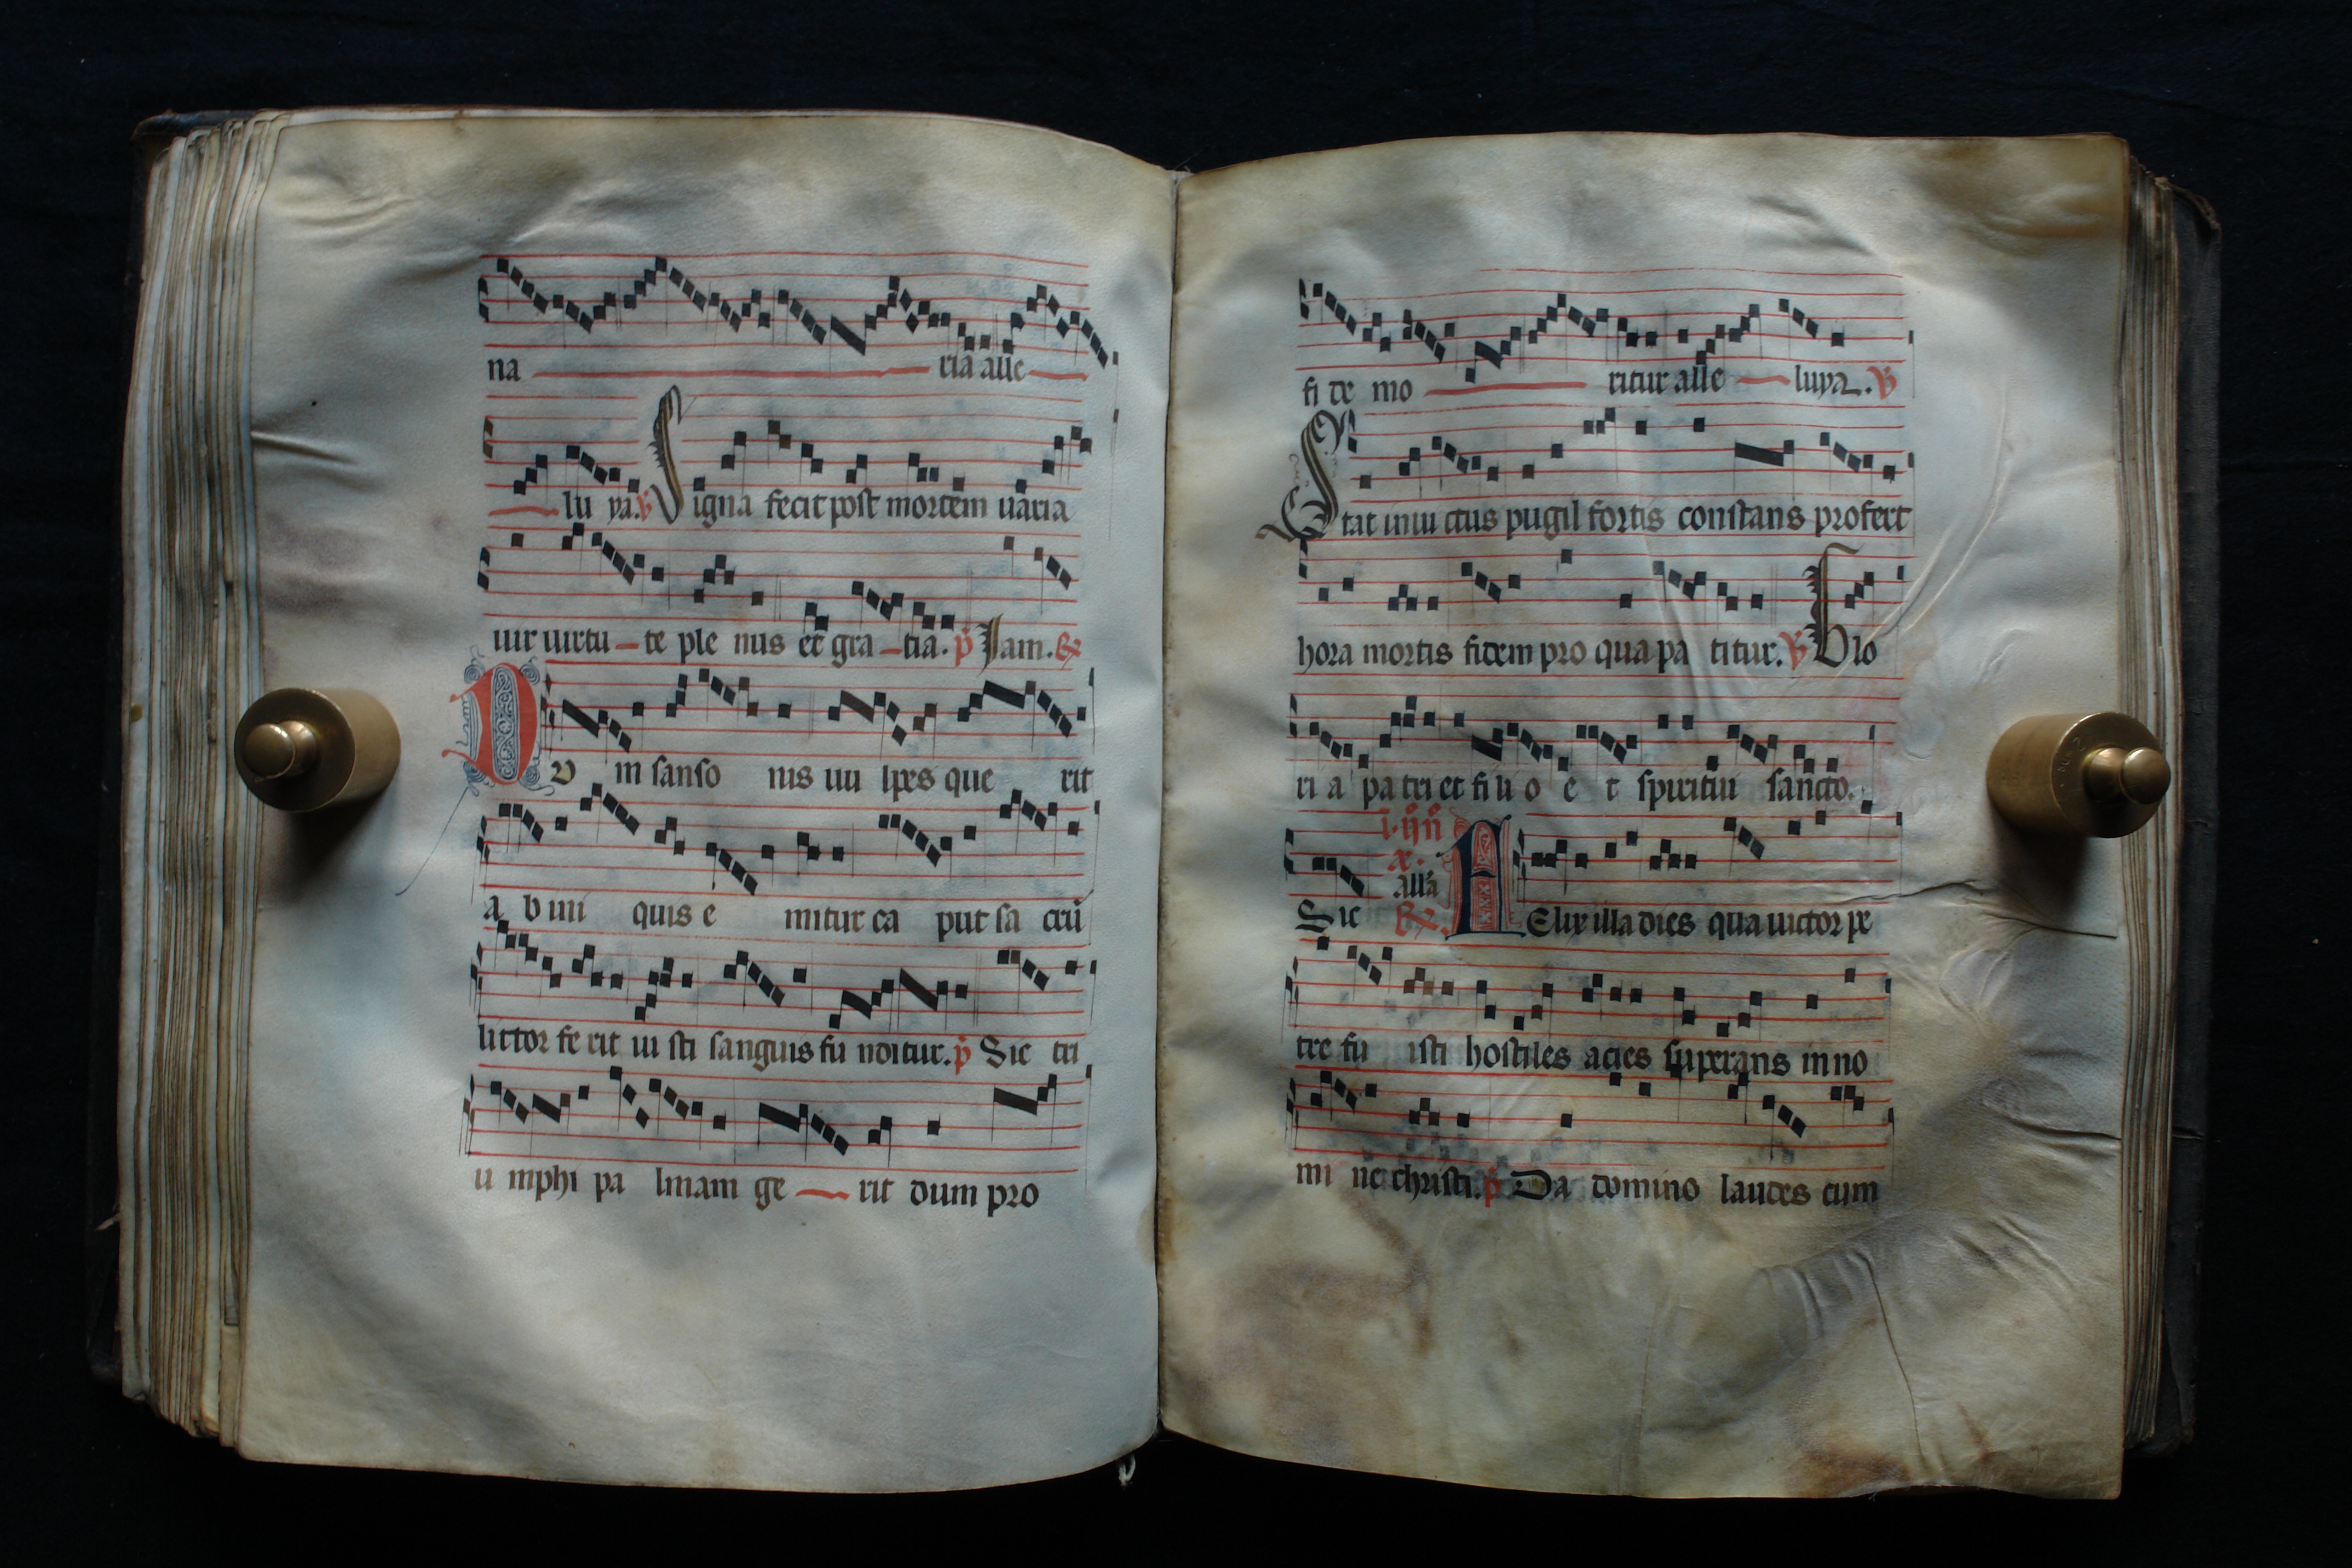 na ria alle
lu ya. ℣ Signa fecit post mortem uaria
uir uirtu te ple nus et gra tia. p̄ Iam. ℟
Dv m sanso nis uu lpes que rit
a b imi quis e mitur ca put sa crū
lictor fe rit iu sti sanguis fu nditur. p̄ Sic tri
u mphi pa lmam ge rit dum pro
fi de mo ritur alle luya. ℣
Stat inui ctus pugil fortis constans profert
hora mortis fidem pro qua pa titur. ℣ Glo
ri a pa tri et fi li o e t spiritui sancto.
Sic alla ℟. FElix illa dies qua uictor pe
tre fu isti hostiles acies superans in no
mi ne christi. p̄ Da domino laudes cum